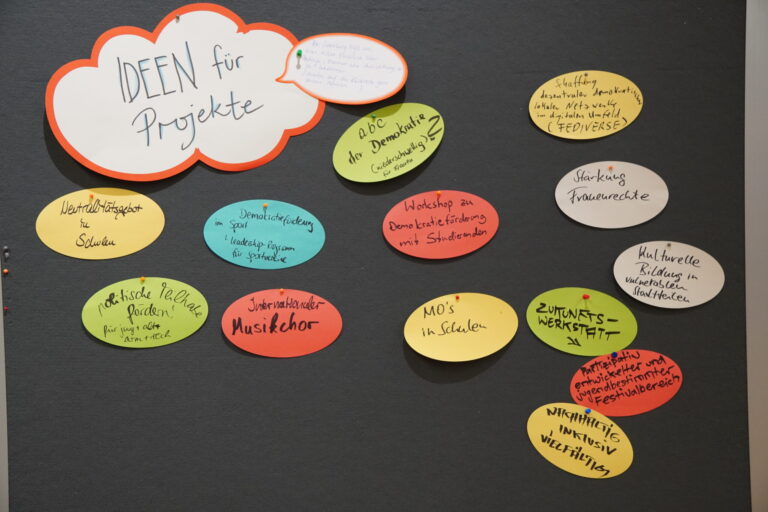 IDEEN für
Projekte
abc
der Demokratie
(niederschwellig)
für Frauen
?
Schaffung
dezentraler demokratischer
lokaler Netzwerke
im digitalen Umfeld
(FEDIVERSE)
Neutralitätsgebot
in
Schulen
Demokratieförderung
im Sport
Leadership Programm
für Sportvereine
Workshop zu
Demokratieförderung
mit Studierenden
Stärkung
Frauenrechte
Kulturelle
Bildung in
vulnerablen
Stadtteilen
politische Teilhabe
fördern!
für jung + alt
arm + reich
Internationaler
Musikchor
MO's
in Schulen
ZUKUNFTS-
WERKSTATT
Partizipativ
entwickelter und
jugendbestimmter
Festivalbereich
NACHHALTIG
INKLUSIV
VIELFÄLTIG